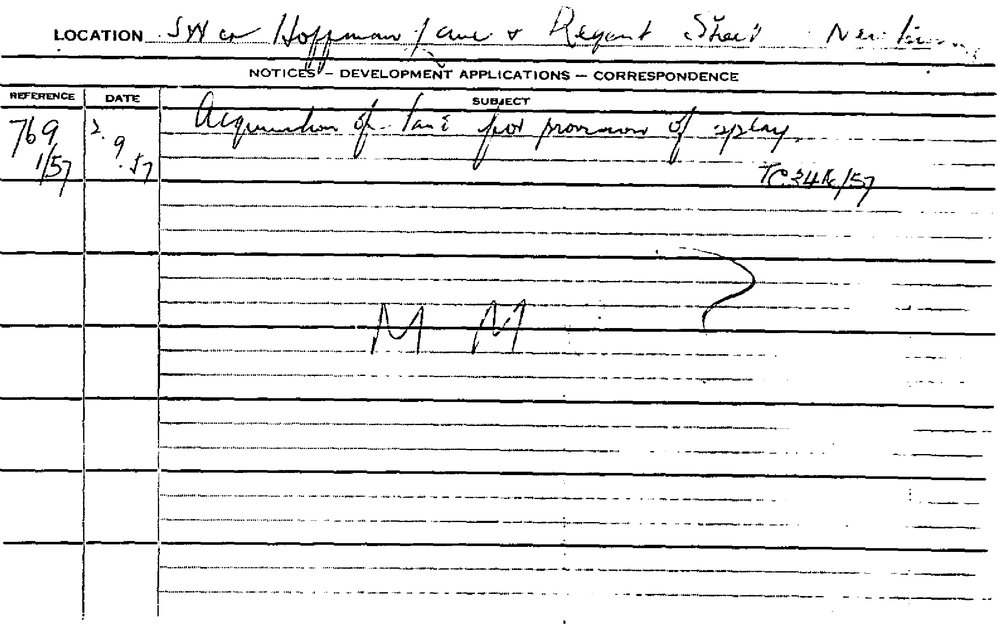 LOCATION SW cr Hoffman Lane & Regent Street Newtown
NOTICES – DEVELOPMENT APPLICATIONS – CORRESPONDENCE
REFERENCE DATE SUBJECT
769 2. Acquisition of land for provision of splay.
1/57 9
.57
TC 34 /57
M M